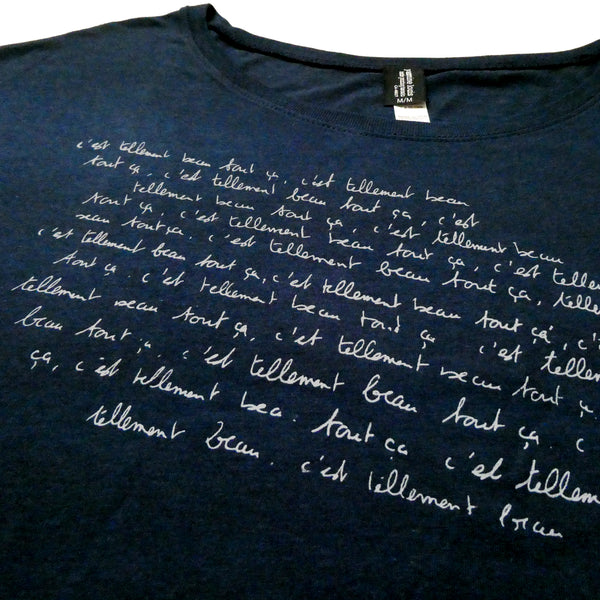 M/M
c'est tellement beau tout ça, c'est tellement beau
tout ça, c'est tellement beau tout ça, c'est
tellement beau tout ça, c'est tellement beau
tout ça, c'est tellement beau tout ça, c'est tellem
beau tout ça, c'est tellement beau tout ça, telle
c'est tellement beau tout ça, c'est tellement beau tout ça, c'
tout ça. c'est tellement beau tout ça c'est tellem
tellement beau tout ça, c'est tellement beau tout ça.
beau tout ça, c'est tellement beau tout ça. c
ça, c'est tellement beau. tout ça c'est tellem
tellement beau. c'est tellement beau